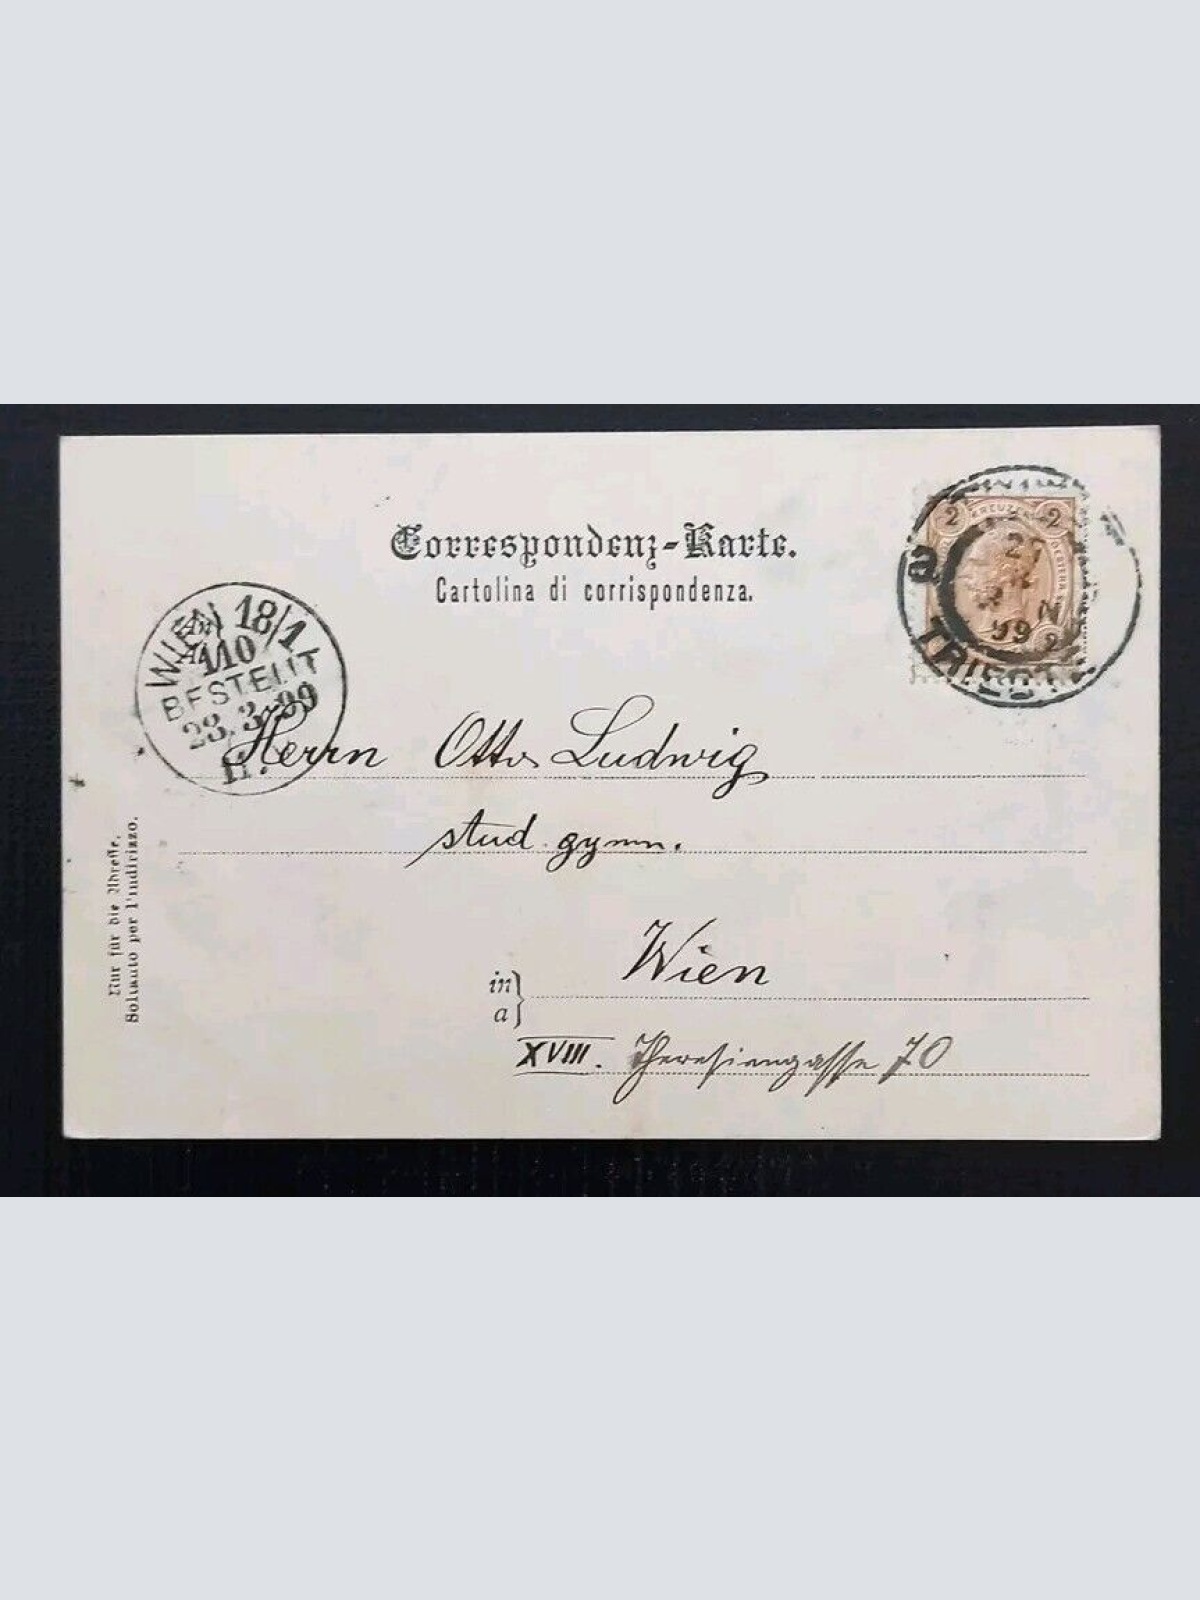 Correspondenz-Karte.
Cartolina di corrispondenza.
2 KREUZER 2
2
27
99
TRIEST
a
WIEN 18/1
110
BESTELLT
28.3.99
Herrn Otto Ludwig
stud. gymn.
in
a
Wien
XVIII. Theresiengasse 70
Nur für die Adresse.
Soltanto per l'indirizzo.